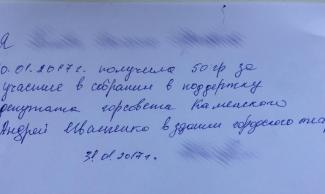 Я
0.01.2017г. получила 50 гр за
участие в собрании в поддержку
депутата горсовета Каменского
Андрей Иващенко в здании городского теа
31.01.2017г.